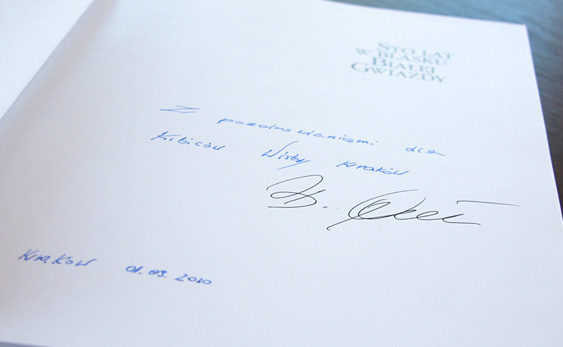 STO LAT
W BLASKU
BIAŁEJ
GWIAZDY
Z pozdrowieniami dla
Kibiców Wisły Kraków
Kraków 01.09.2010